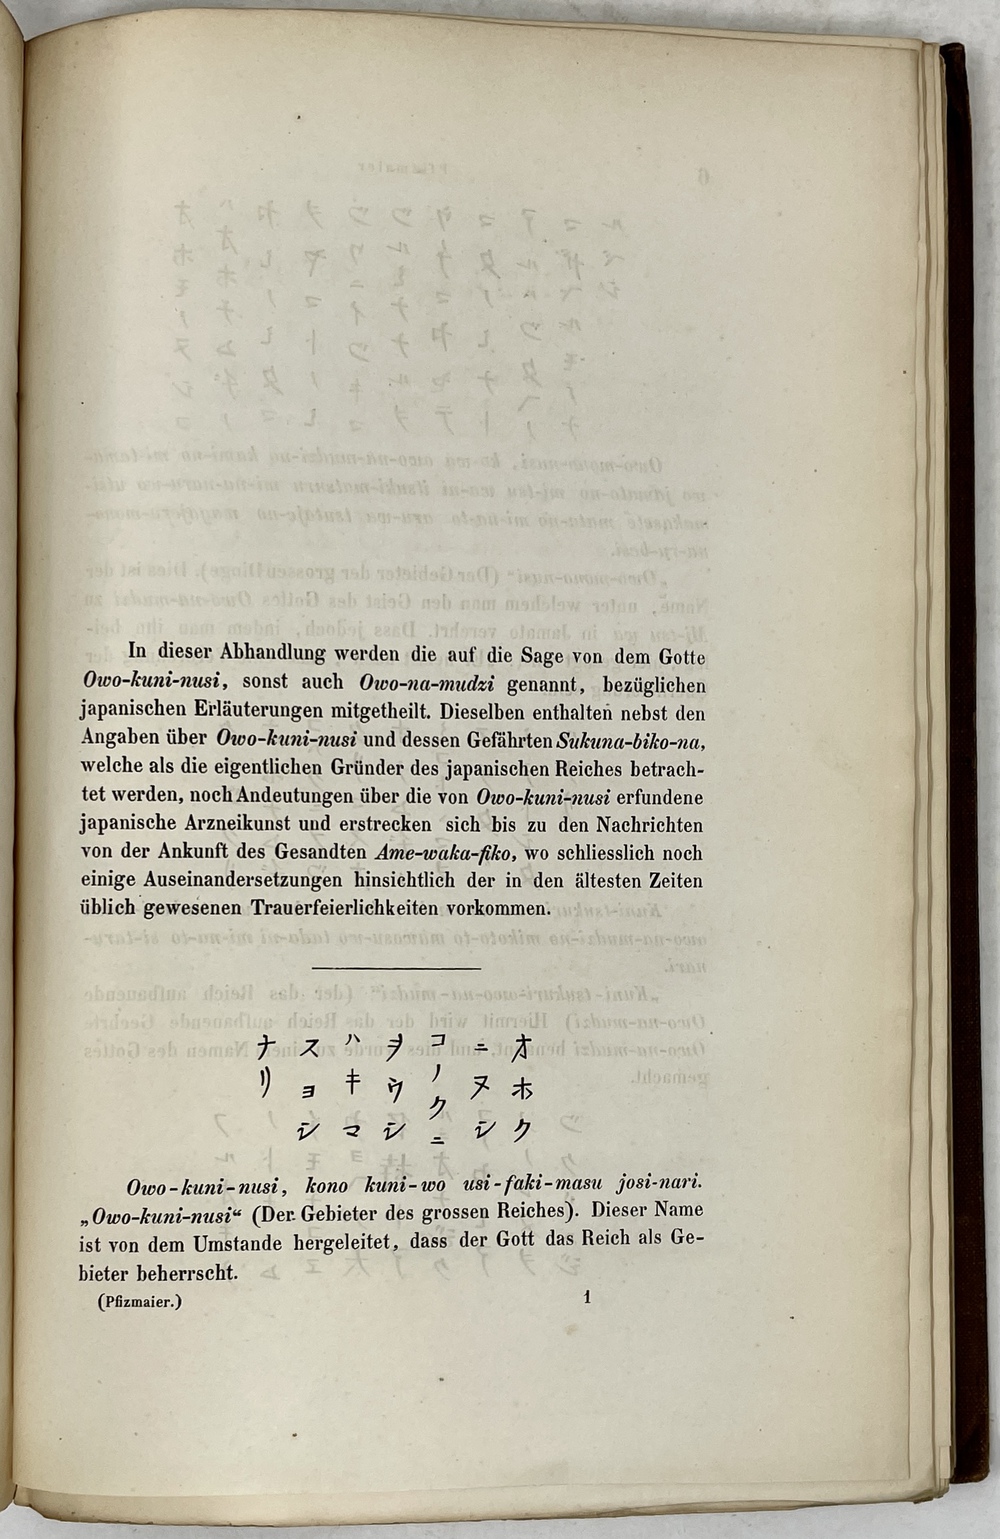 In dieser Abhandlung werden die auf die Sage von dem Gotte
Owo-kuni-nusi, sonst auch Owo-na-mudzi genannt, bezüglichen
japanischen Erläuterungen mitgetheilt. Dieselben enthalten nebst den
Angaben über Owo-kuni-nusi und dessen Gefährten Sukuna-biko-na,
welche als die eigentlichen Gründer des japanischen Reiches betrach-
tet werden, noch Andeutungen über die von Owo-kuni-nusi erfundene
japanische Arzneikunst und erstrecken sich bis zu den Nachrichten
von der Ankunft des Gesandten Ame-waka-fiko, wo schliesslich noch
einige Auseinandersetzungen hinsichtlich der in den ältesten Zeiten
üblich gewesenen Trauerfeierlichkeiten vorkommen.
オホク
ニヌシ
コノクニ
ヲウシ
ハキマ
スヨシ
ナリ
Owo-kuni-nusi, kono kuni-wo usi-faki-masu josi-nari.
„Owo-kuni-nusi“ (Der Gebieter des grossen Reiches). Dieser Name
ist von dem Umstande hergeleitet, dass der Gott das Reich als Ge-
bieter beherrscht.
(Pfizmaier.) 1